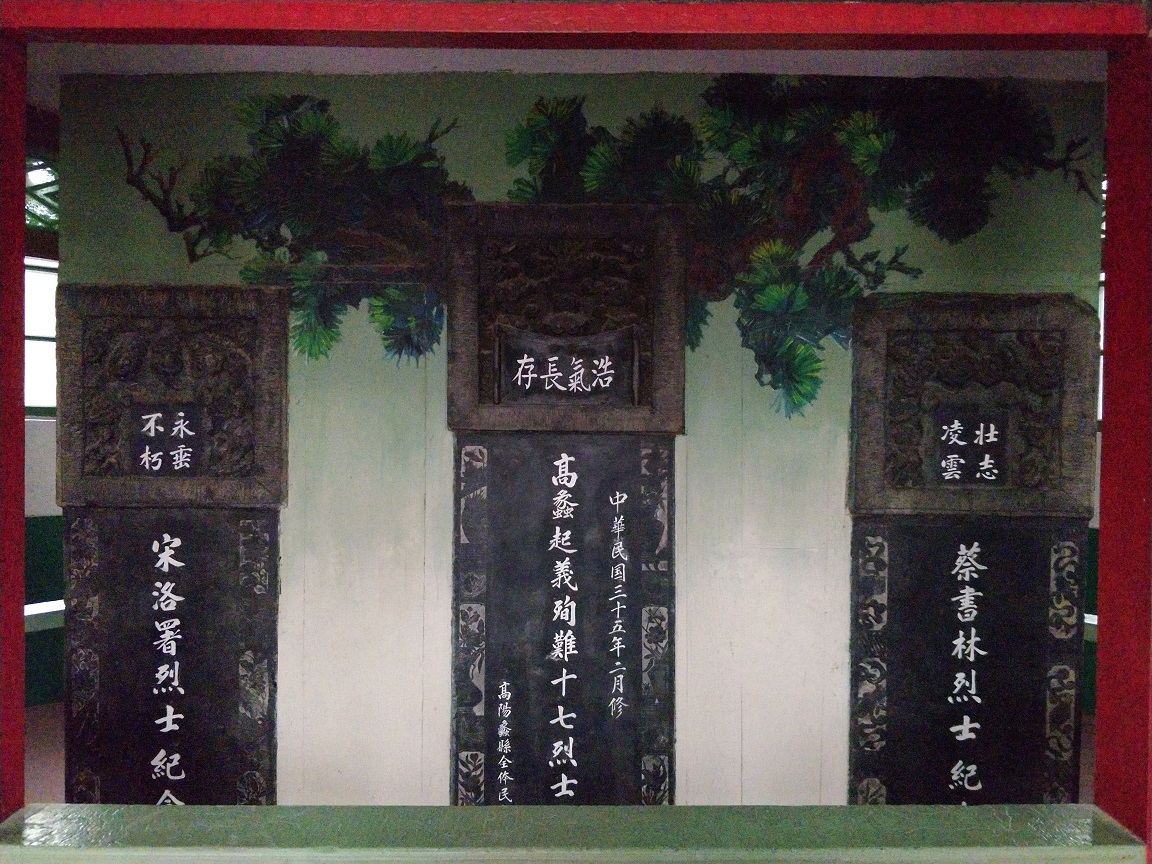 浩氣長存
中華民国三十五年二月修
高蠡起義殉難十七烈士
高陽蠡縣全体民
壯志
凌雲
蔡書林烈士紀
永垂
不朽
宋洛署烈士紀念